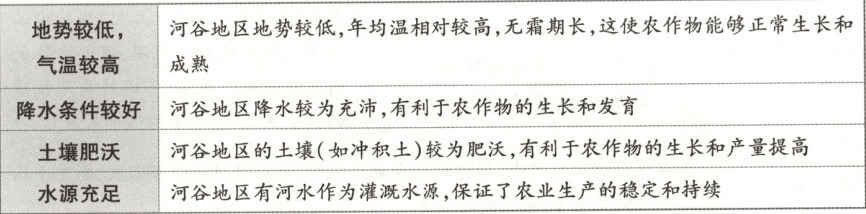 地势较低，
气温较高
河谷地区地势较低,年均温相对较高,无霜期长,这使农作物能够正常生长和
成熟
降水条件较好
河谷地区降水较为充沛,有利于农作物的生长和发育
土壤肥沃
河谷地区的土壤(如冲积土)较为肥沃,有利于农作物的生长和产量提高
水源充足
河谷地区有河水作为灌溉水源,保证了农业生产的稳定和持续